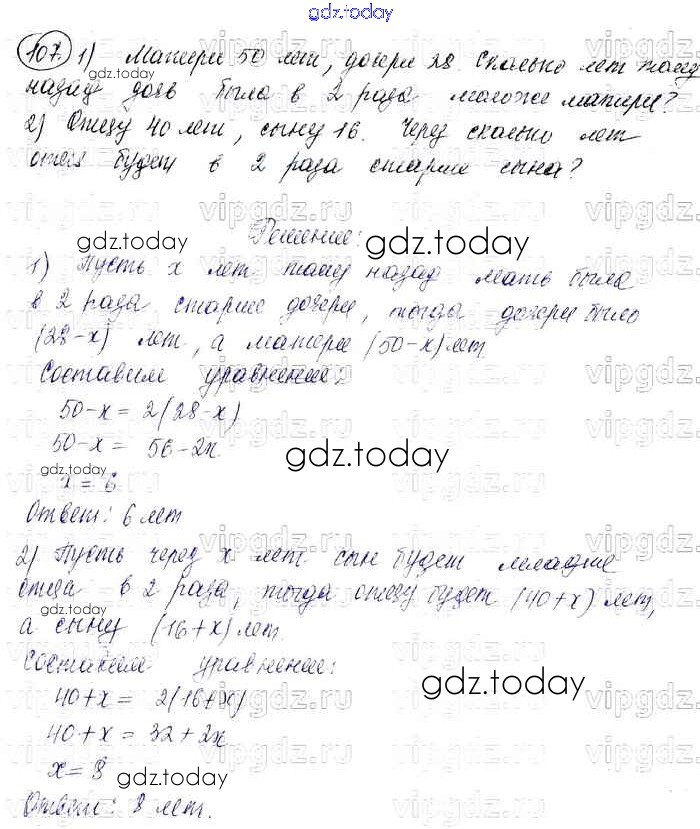 gdz.today
107. 1) Матери 50 лет, дочери 28. Сколько лет тому
gdz.today
назад дочь была в 2 раза моложе матери?
2) Отцу 40 лет, сыну 16. Через сколько лет
отец будет в 2 раза старше сына?
vipgdz.ru vipgdz.ru vipgdz.ru vipgdz
Решение:
gdz.today gdz.today
1) Пусть x лет тому назад мать была
в 2 раза старше дочери, тогда дочери было
(28-x) лет, а матери (50-x) лет
Составим уравнение:
vipgdz.ru vipgdz.ru vipgdz.ru vipgdz
50-x = 2(28-x)
50-x = 56-2x
gdz.today
gdz.today
x = 6
Ответ: 6 лет
2) Пусть через x лет сын будет младше
отца в 2 раза, тогда отцу будет (40+x) лет,
gdz.today
а сыну (16+x) лет
Составим уравнение:
40+x = 2(16+x)
gdz.today
40+x = 32+2x
x = 8
gdz.today
Ответ: 8 лет.